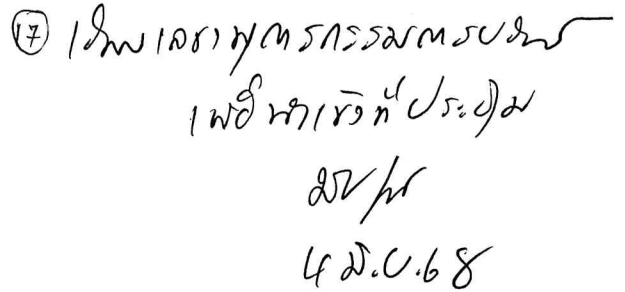 ⑰ เรียน เลขานุการกรรมการบริหาร
เพื่อนำเข้าที่ประชุม
4 มิ.ย. 68